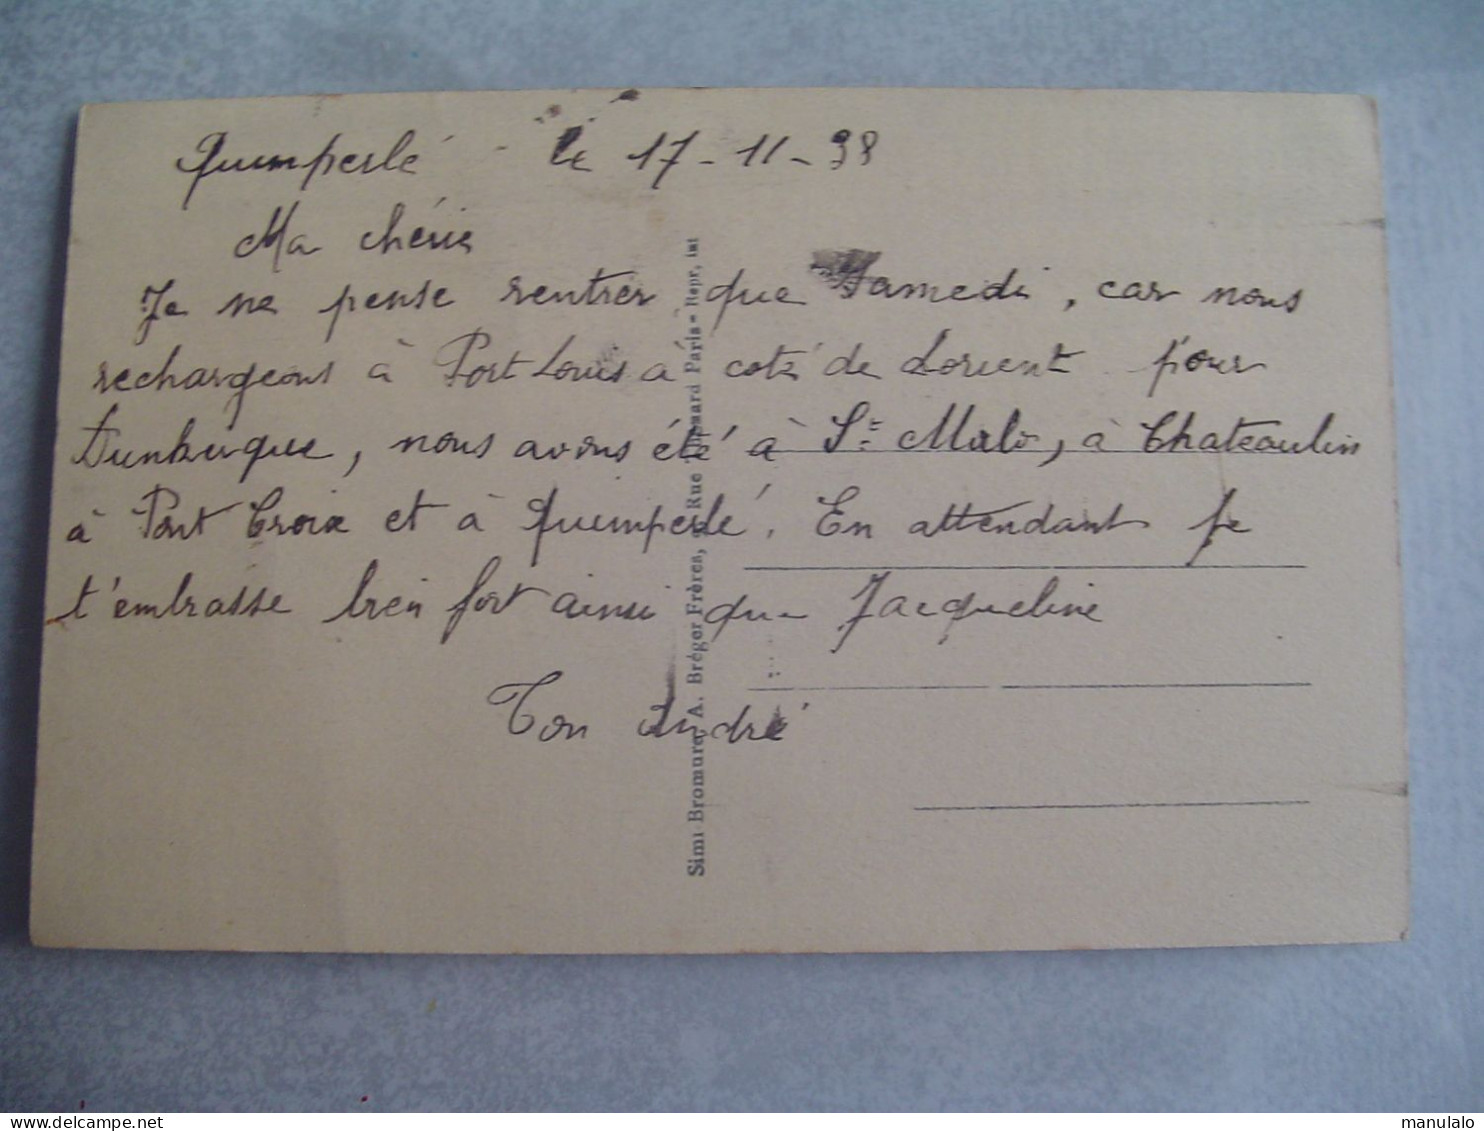 Quimperlé - le 17-11-38
Ma chérie
Je ne pense rentrer que Samedi, car nous
rechargeons à Port Louis à coté de Lorient pour
Dunkerque, nous avons été à St Malo, à Chateaulin
à Pont Croix et à Quimperlé. En attendant je
t'embrasse bien fort ainsi que Jacqueline
Ton André
Simi-Bromure, A. Bréger Frères, Rue Paris - Repr. int
manulalo